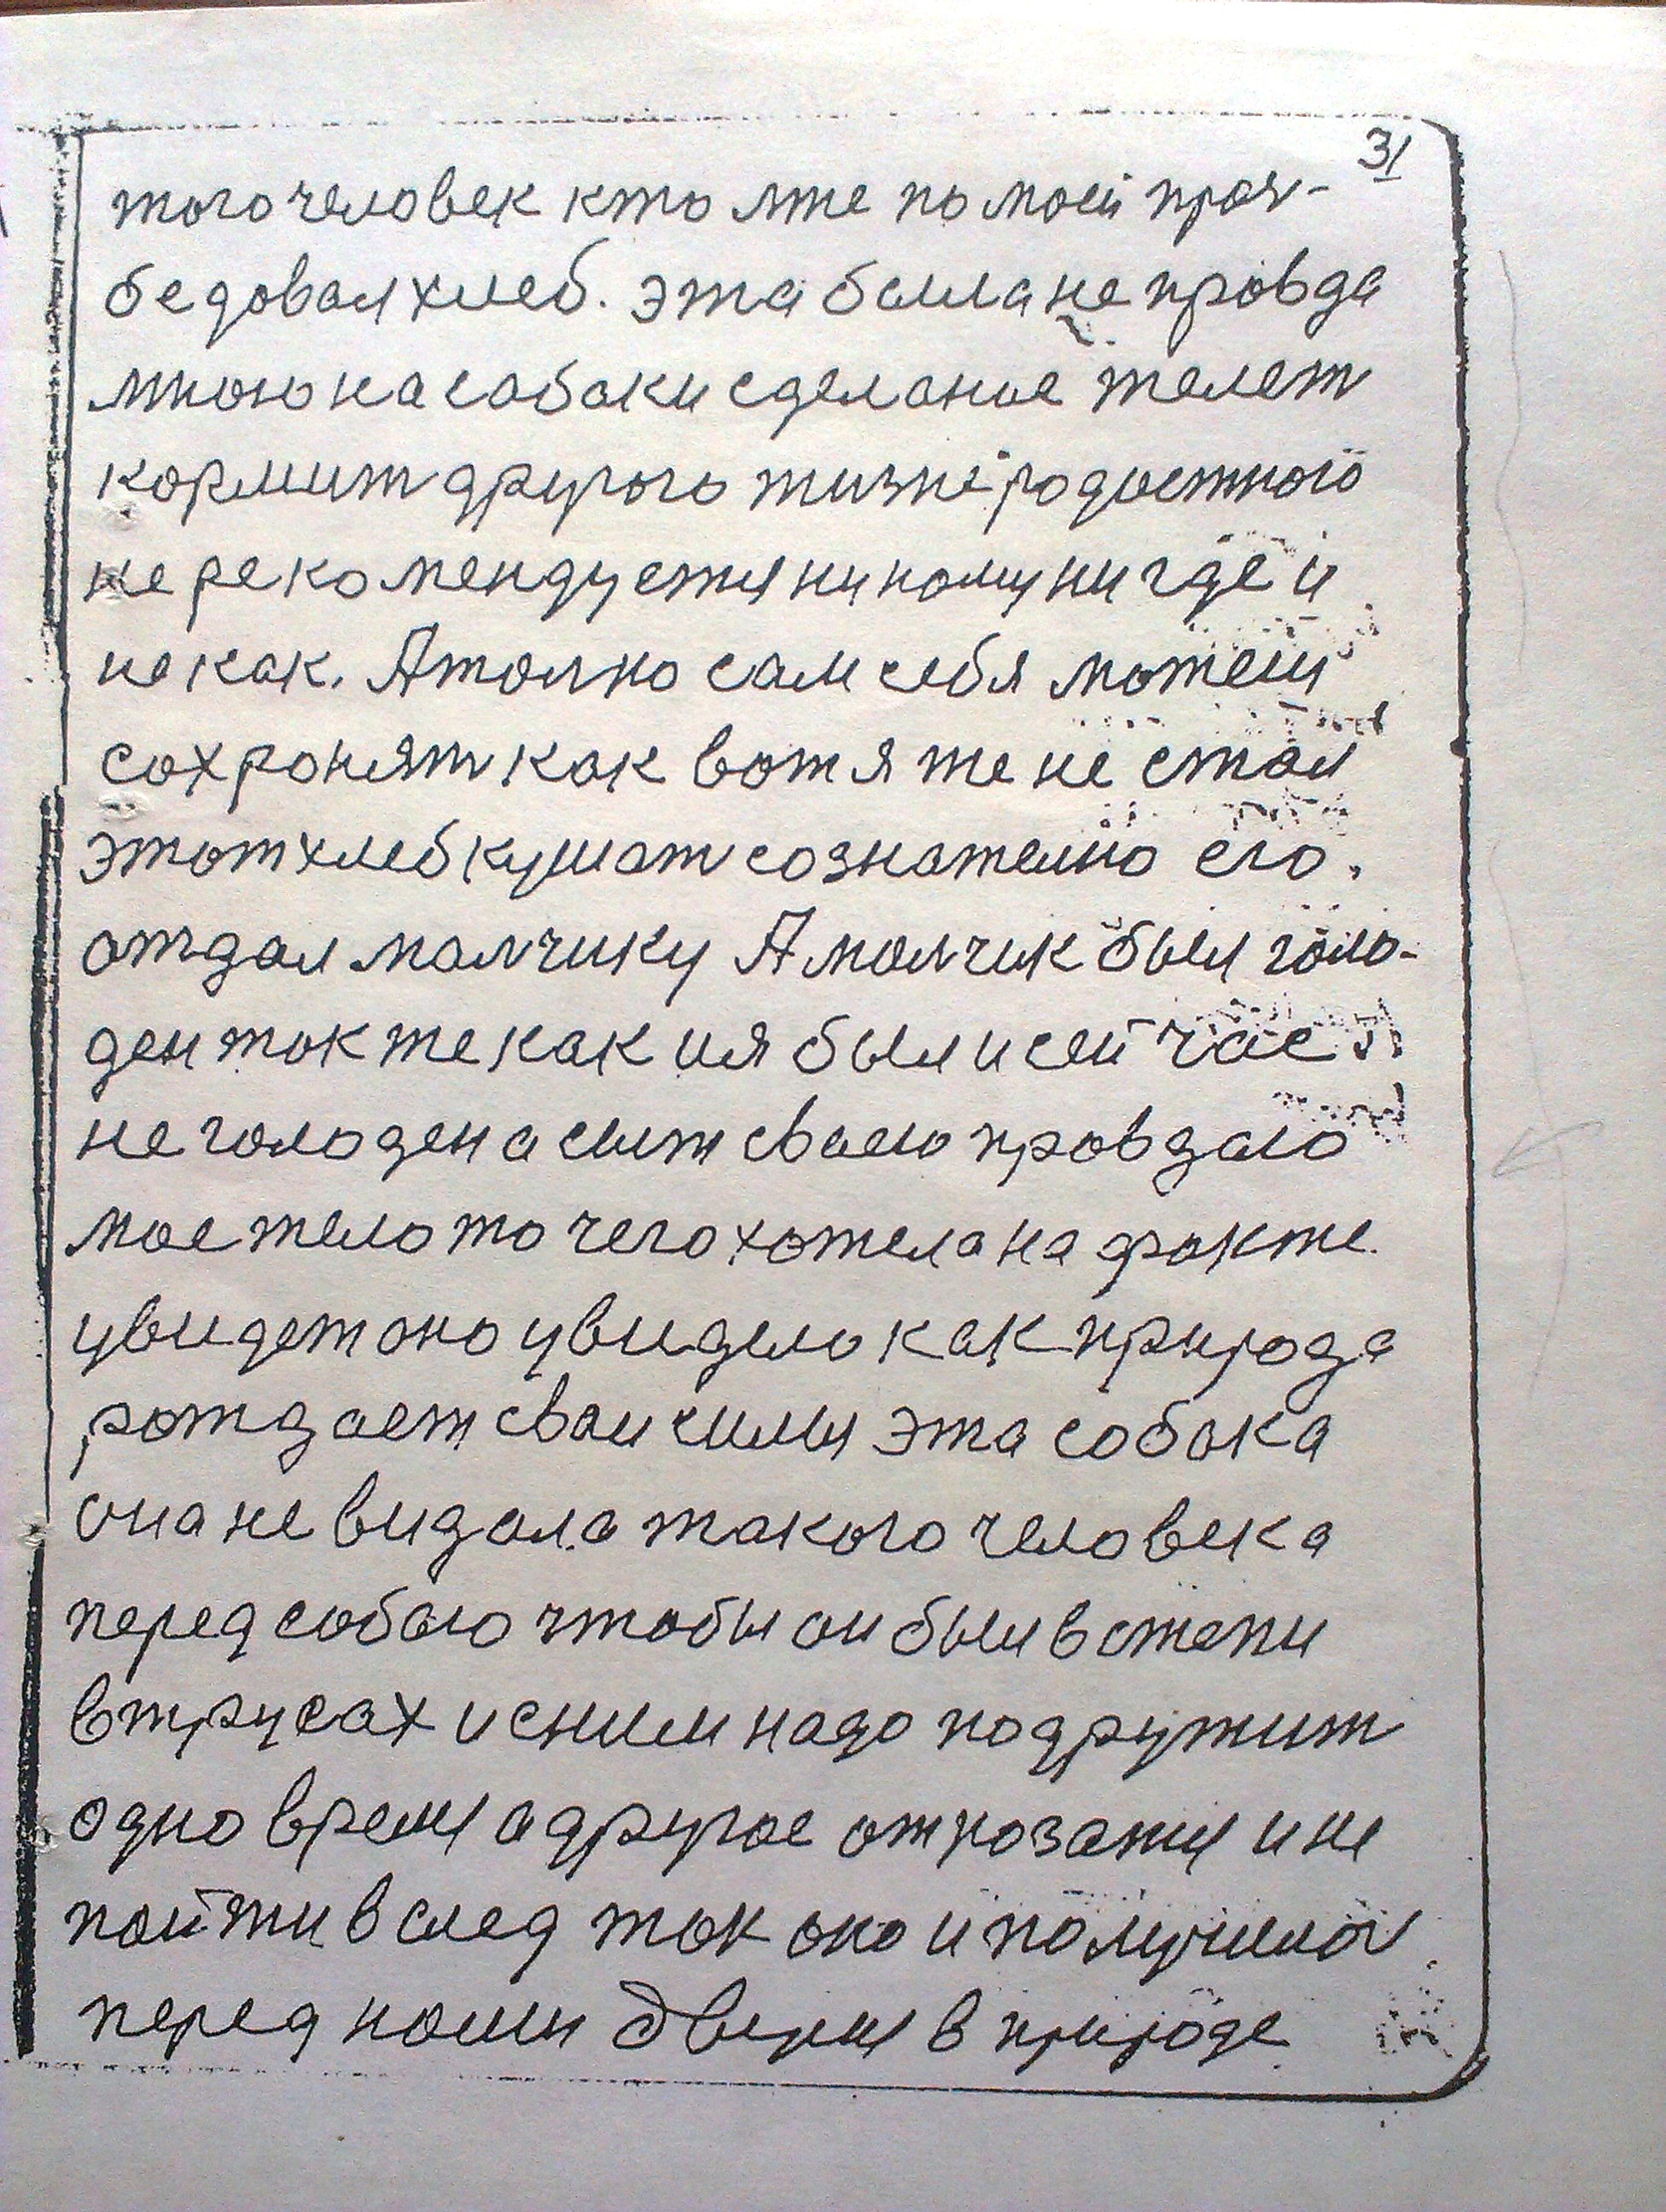 31
того человек кто мне по моей проз-
бе довал хлеб. эта была не провда
мною на собаки сделаное тле ет
кормит другого жизнёродостного
не рекомендуется никому ни где и
не как. А толко сам себя можеш
сохронят как вот я же не стал
этот хлеб кушат сознателно его.
отдал малчику А малчик был голо-
ден ток же как и я был и сейчас
не голоден а сыт сваею провдаю
мое тело то чего хотела на факте
увидет оно увидело как природа
рождает сваи силы эта собака
она не видала такого человека
перед собаю чтобы он был в степи
в трусах и с ним надо подружит
одно время а другое откозатя и не
пойти в след ток оно и получилоя
перед нами дверия в природе